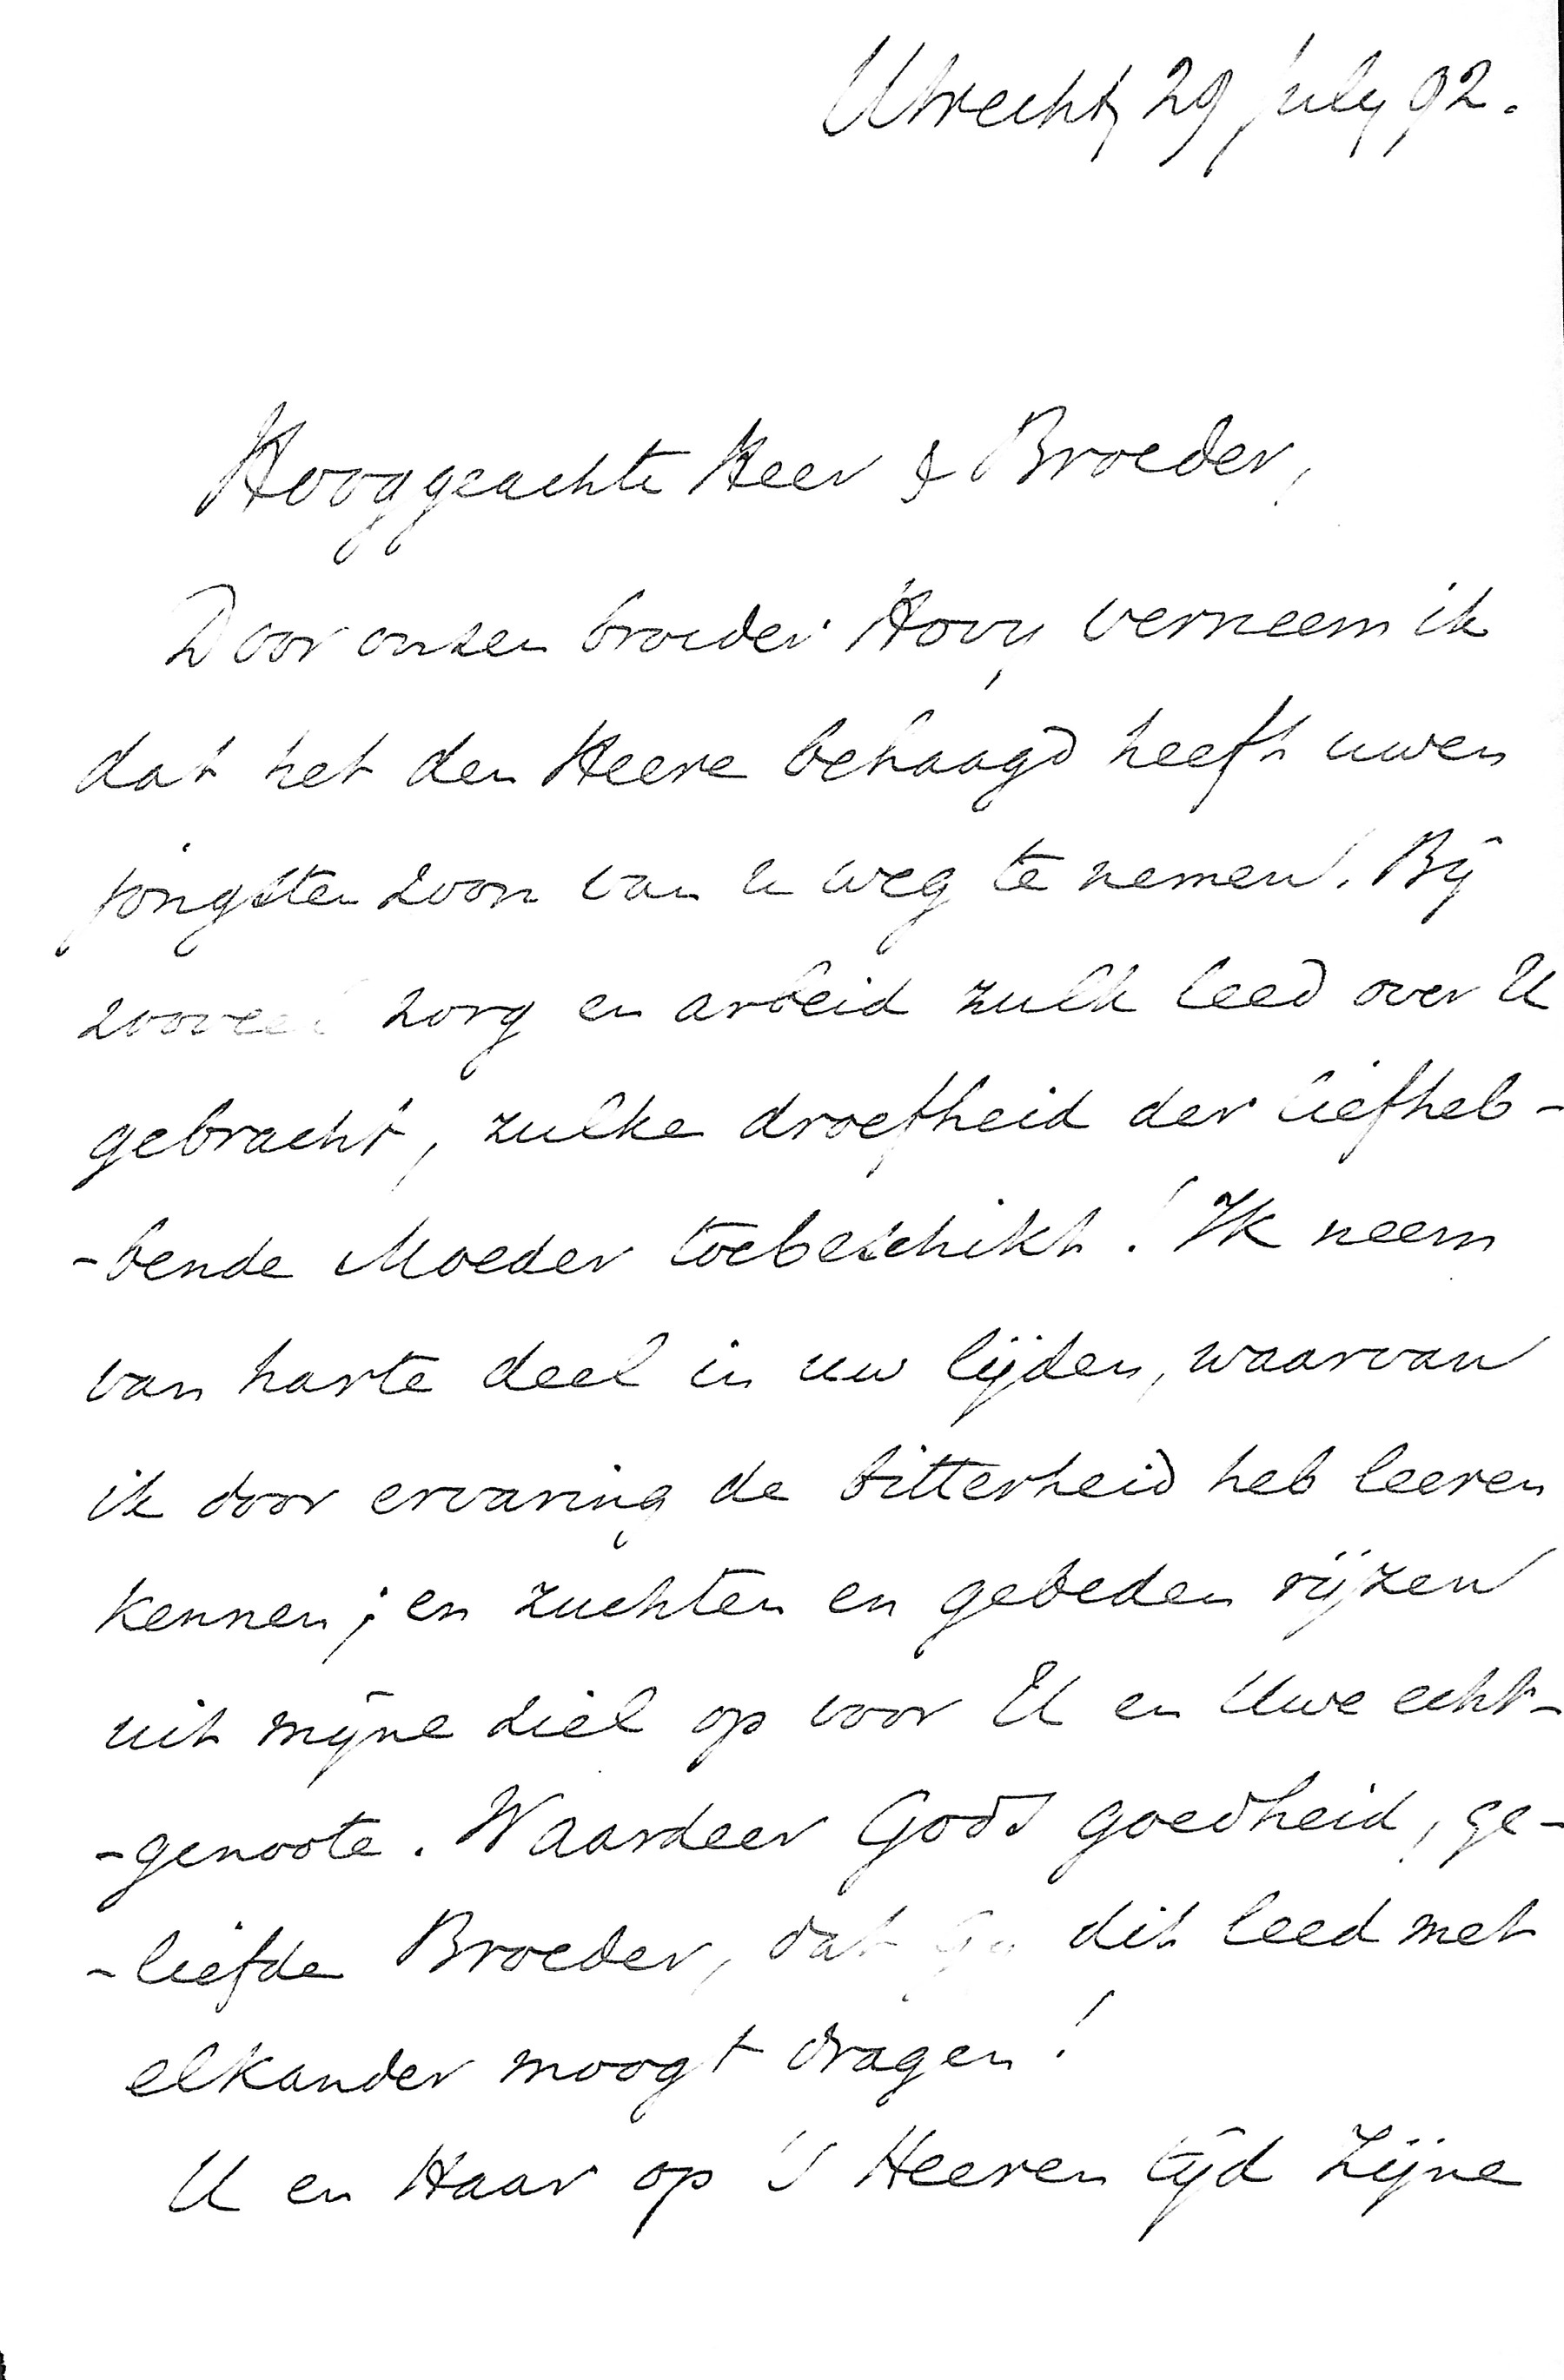 Utrecht, 29 July 92.
Hooggeachte Heer & Broeder,
Door onzen broeder Hovy verneem ik
dat het den Heere behaagd heeft uwen
jongsten zoon van u weg te nemen. Bij
zooveel zorg en arbeid zulk leed over U
gebracht, zulke droefheid der liefheb-
-bende Moeder toebeschikt! Ik neem
van harte deel in uw lijden, waarvan
ik door ervaring de bitterheid heb leeren
kennen; en zuchten en gebeden rijzen
uit mijne ziel op voor U en Uwe echt-
-genoote. Waardeer Gods goedheid, ge-
-liefde Broeder, dat Gij dit leed met
elkander moogt dragen!
U en Haar op 's Heeren tijd Zijne